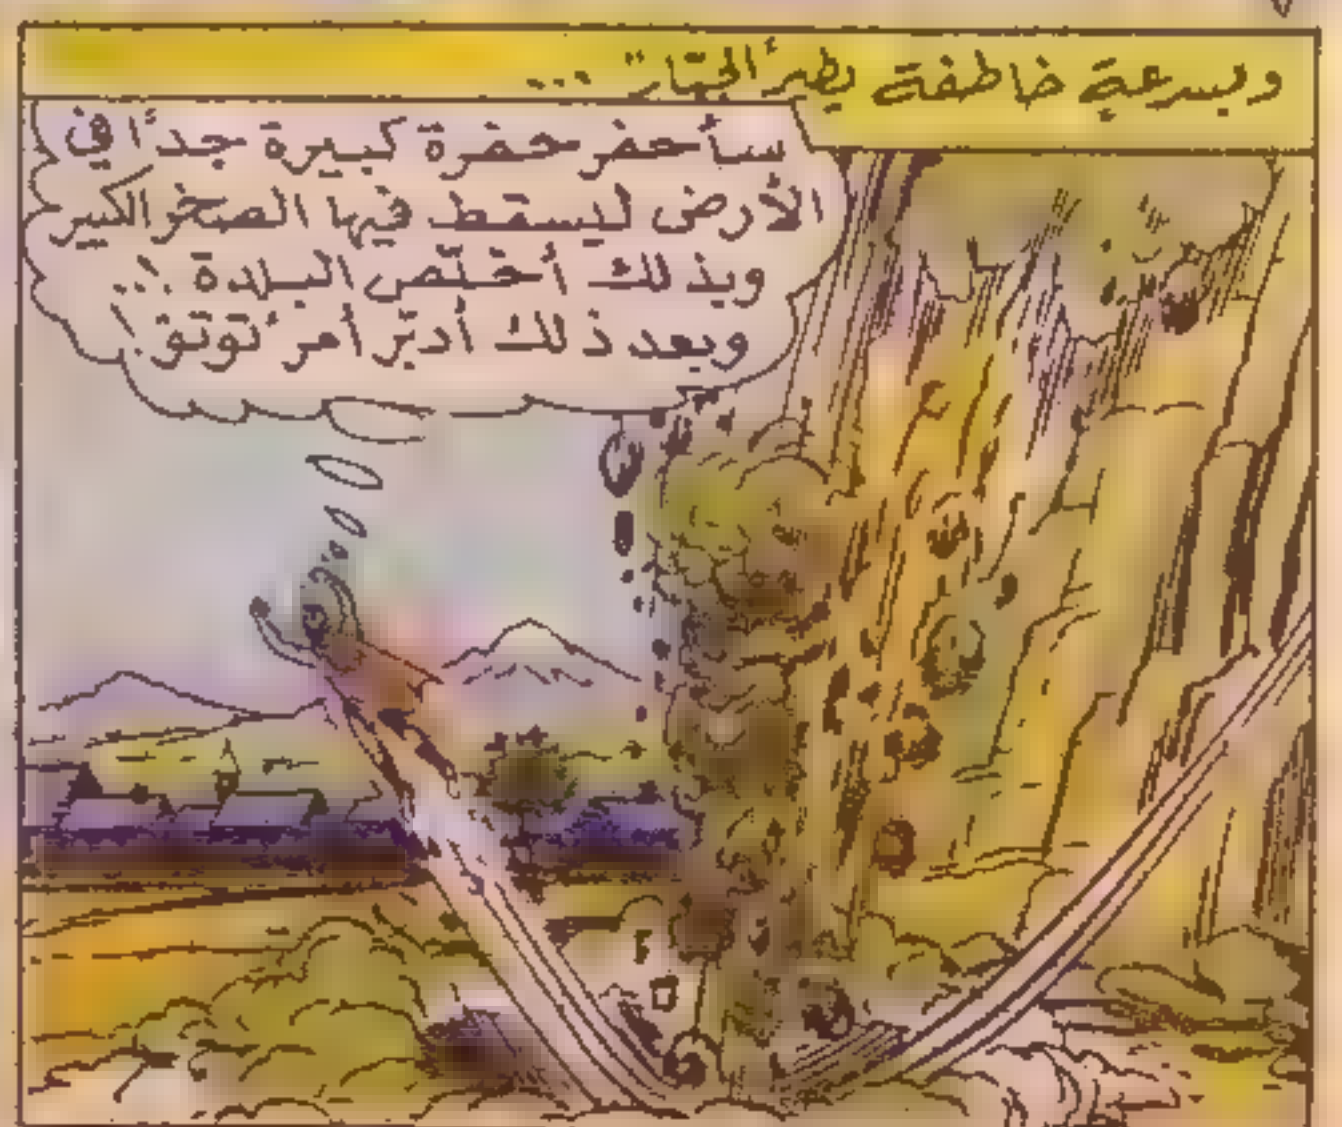 وبسرعةٍ خاطفة يطير "الجبّار" ...
سأحفر حفرة كبيرة جدًا في
الأرض ليسقط فيها الصخر الكبير
وبذلك أخلّص البلدة !..
وبعد ذلك أدبّر أمر "توتو" !